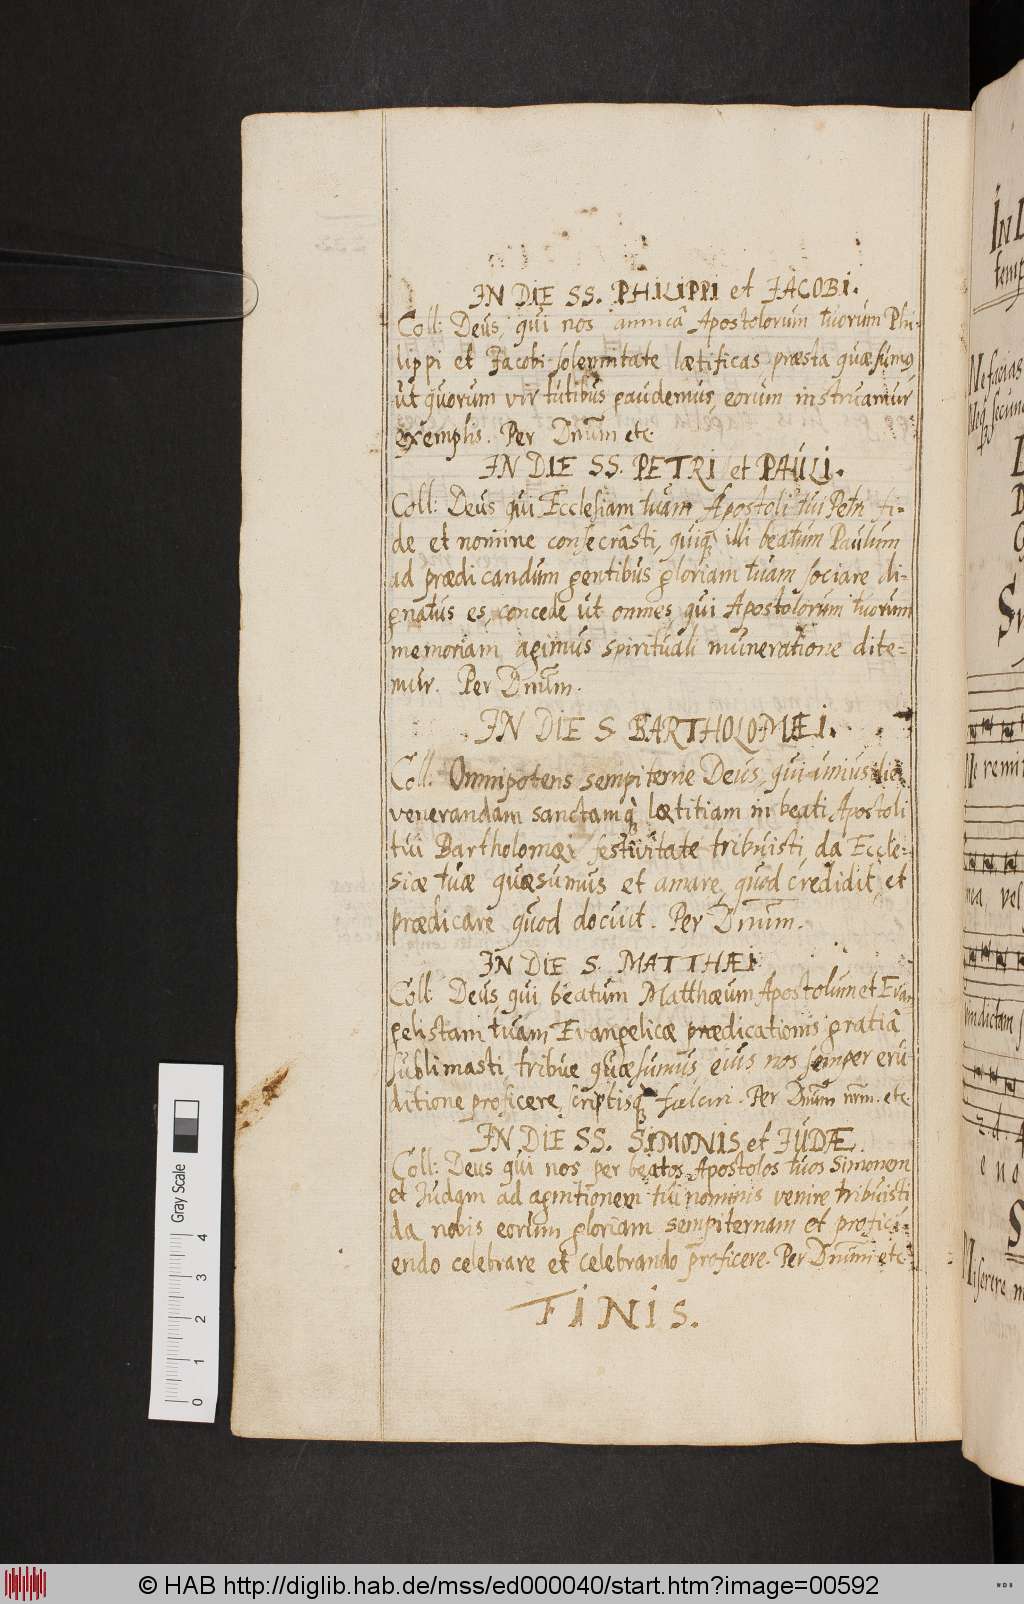 IN DIE SS. PHILIPPI et JACOBI.
Coll: Deus, qui nos annuâ Apostolorum tuorum Phi-
lippi et Jacobi solennitate lætificas, præsta quæsumus
ut quorum virtutibus gaudemus, eorum instruamur
exemplis. Per Dnum etc.
IN DIE SS. PETRI et PAULI.
Coll: Deus qui Ecclesiam tuam Apostoli tui Petri fi-
de et nomine consecrâsti, quiq illi beatum Paulum
ad prædicandum gentibus gloriam tuam sociare di-
gnatus es, concede ut omnes, qui Apostolorum tuorum
memoriam agimus spirituali muneratione dite-
mur. Per Dnum.
IN DIE S. BARTHOLOMÆI.
Coll. Omnipotens sempiterne Deus, qui uniusdiei
venerandam sanctamq lætitiam in beati Apostoli
tui Bartholomæi festivitate tribuisti, da Eccle-
siæ tuæ quæsumus et amare, quod credidit, et
prædicare, quod docuit. Per Dnum.
IN DIE S. MATTHÆI.
Coll: Deus, qui beatum Matthæum Apostolum et Evan
gelistam tuam Evangelicæ prædicationis gratiâ
sublimasti, tribue quæsumus, eius nos semper eru
ditione proficere, scriptisq fulciri. Per Dnum nrm. etc.
IN DIE SS. SIMONIS et JUDÆ.
Coll: Deus qui nos per beatos Apostolos tuos Simonem
et Judam ad agnitionem tui nominis venire tribuisti
da nobis eorum gloriam sempiternam et profici-
endo celebrare et celebrando proficere. Per Dnum etc.
FINIS.
Gray Scale
4
3
2
1
0
© HAB http://diglib.hab.de/mss/ed000040/start.htm?image=00592